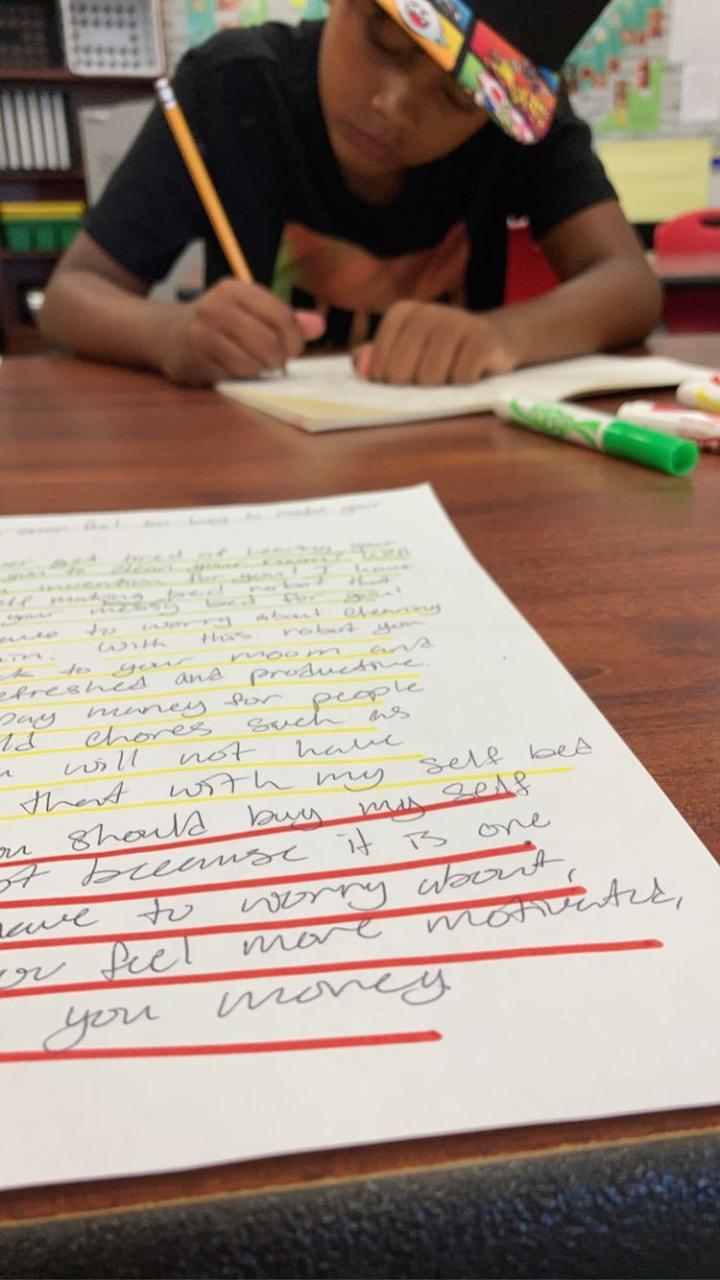 ever feel too busy to make your
get tired of hearing your
you to clean your room, well
invention for you! I have
self making bed robot that
your messy bed for you!
to worry about cleaning
with this robot you
to your moom and
refreshed and productive.
pay money for people
chores such as
will not have
that with my self bed
should buy my self
because it is one
have to worry about,
or feel more motivated,
you money